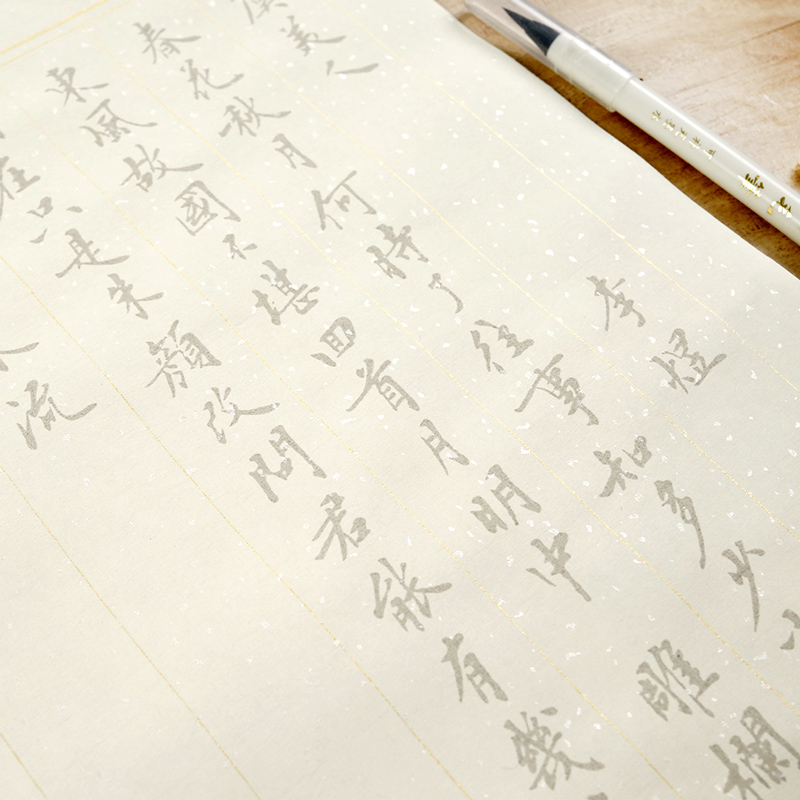 虞美人 李煜
春花秋月何時了往事知多少小
東風故國不堪回首月明中雕欄
在只是朱顏改問君能有幾
水流